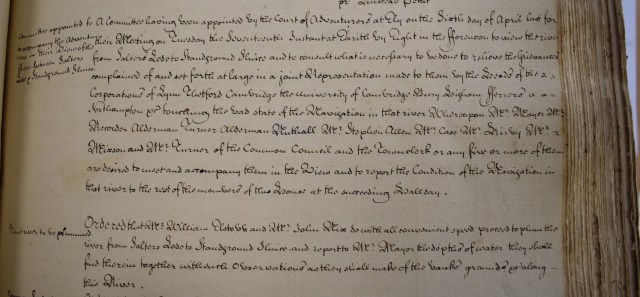 Committee appointed to
accompany the Adventurers
in their View of the
River between Salters
Lode & Standground Sluice
A Committee having been appointed by the Court of Adventurers at Ely on the Sixth day of April last for
their Meeting on Tuesday the Seventeenth Instant at Earith by Eight in the fforenoon to view the river
from Salters Lode to Standground Sluice and to consult what is necessary to be done to relieve the Grievances
complained of and set forth at large in a joint Representation made to them by the Deeds of the
Corporations of Lynn Thetford Cambridge the University of Cambridge Bury Higham fferrers
Northampton &c touching the bad state of the Navigation in that river Whereupon Mr. Mayor Mr.
Recorder Alderman Turner Alderman Nuthall Mr. Stephen Allen Mr. Case Mr.
Mixson and Mr. Turner of the Common Council and the Townclerk or any five or more of them
are desired to meet and accompany them in the View and to report the Condition of the Navigation in
that river to the rest of the members of this House at the succeeding Hallday.
that river to be plumm'd
Ordered that Mr. William Elstobb and Mr. John do with all convenient speed proceed to plum the
river from Salters Lode to Standground Sluice and report to Mr. Mayor the depths of water they shall
find therein together with such Observations as they shall make of the banks grounds &c along
this River.